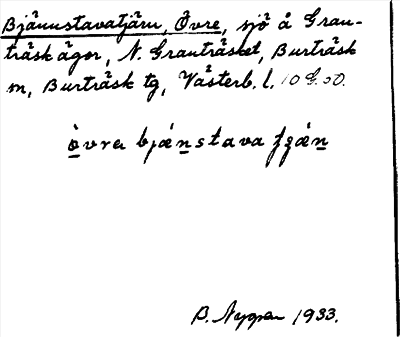 Bjännstavatjärn, Övre, sjö å Gran-
träsk ägor, N. Granträsket, Burträsk
sn, Burträsk tg, Västerb. l. 10 G. 50.
òvrɐ bjænstava ʃʒæn
B. Nygren 1933.